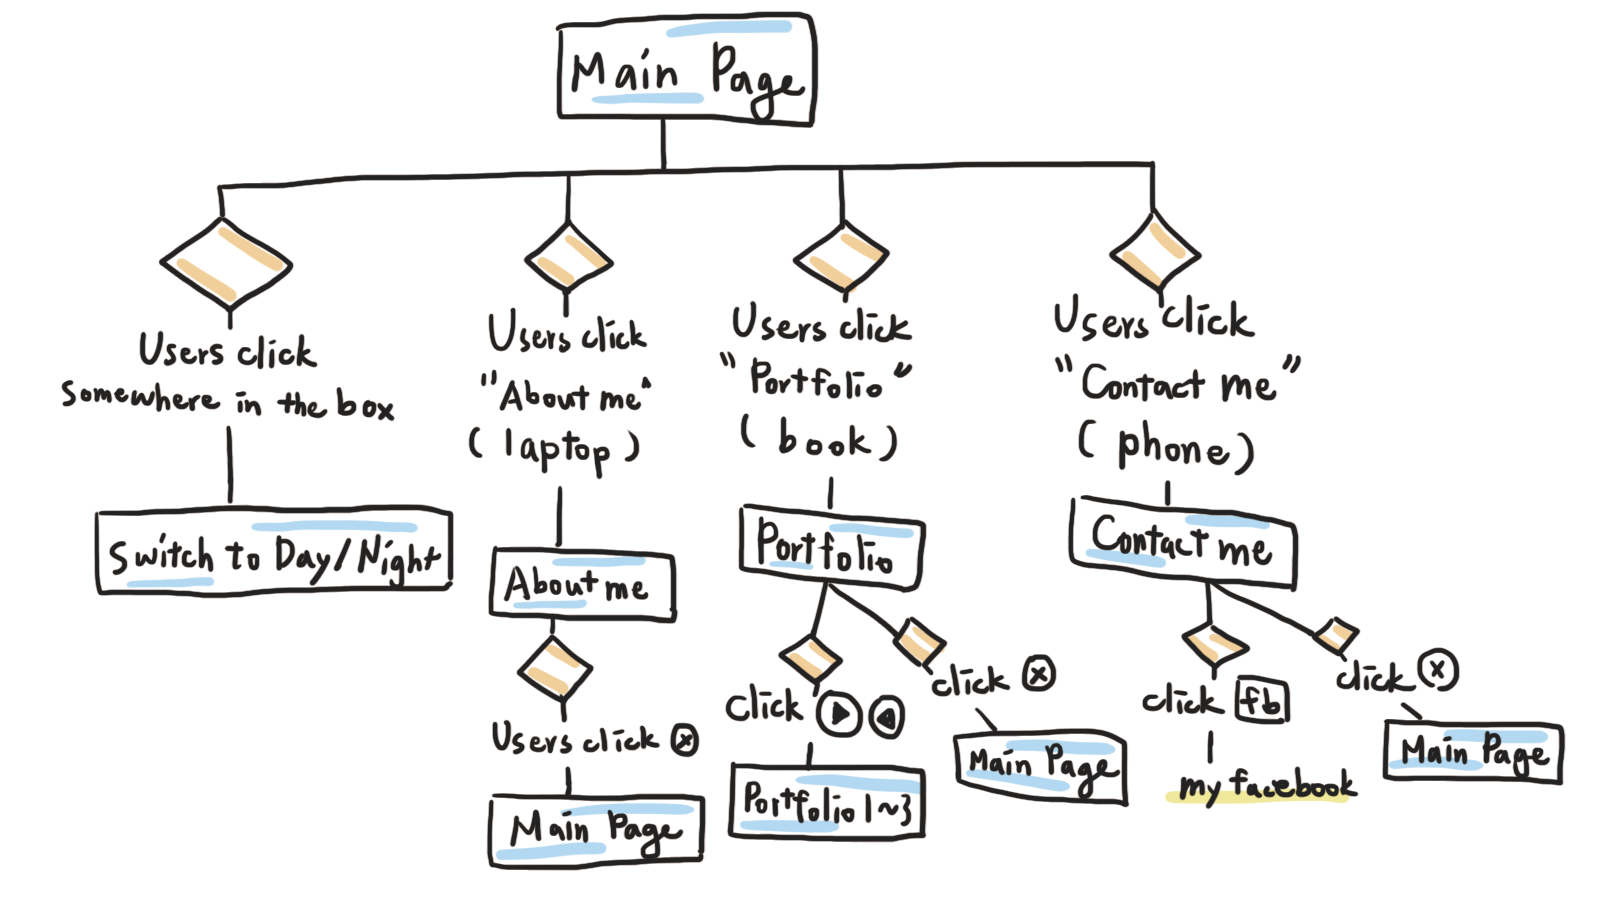 Main Page
Users click
somewhere in the box
Switch to Day/Night
Users click
"About me"
(laptop)
About me
Users click ⓧ
Main Page
Users click
"Portfolio"
(book)
Portfolio
click
Portfolio 1~3
click ⓧ
Main Page
Users click
"Contact me"
(phone)
Contact me
click fb
my facebook
click ⓧ
Main Page